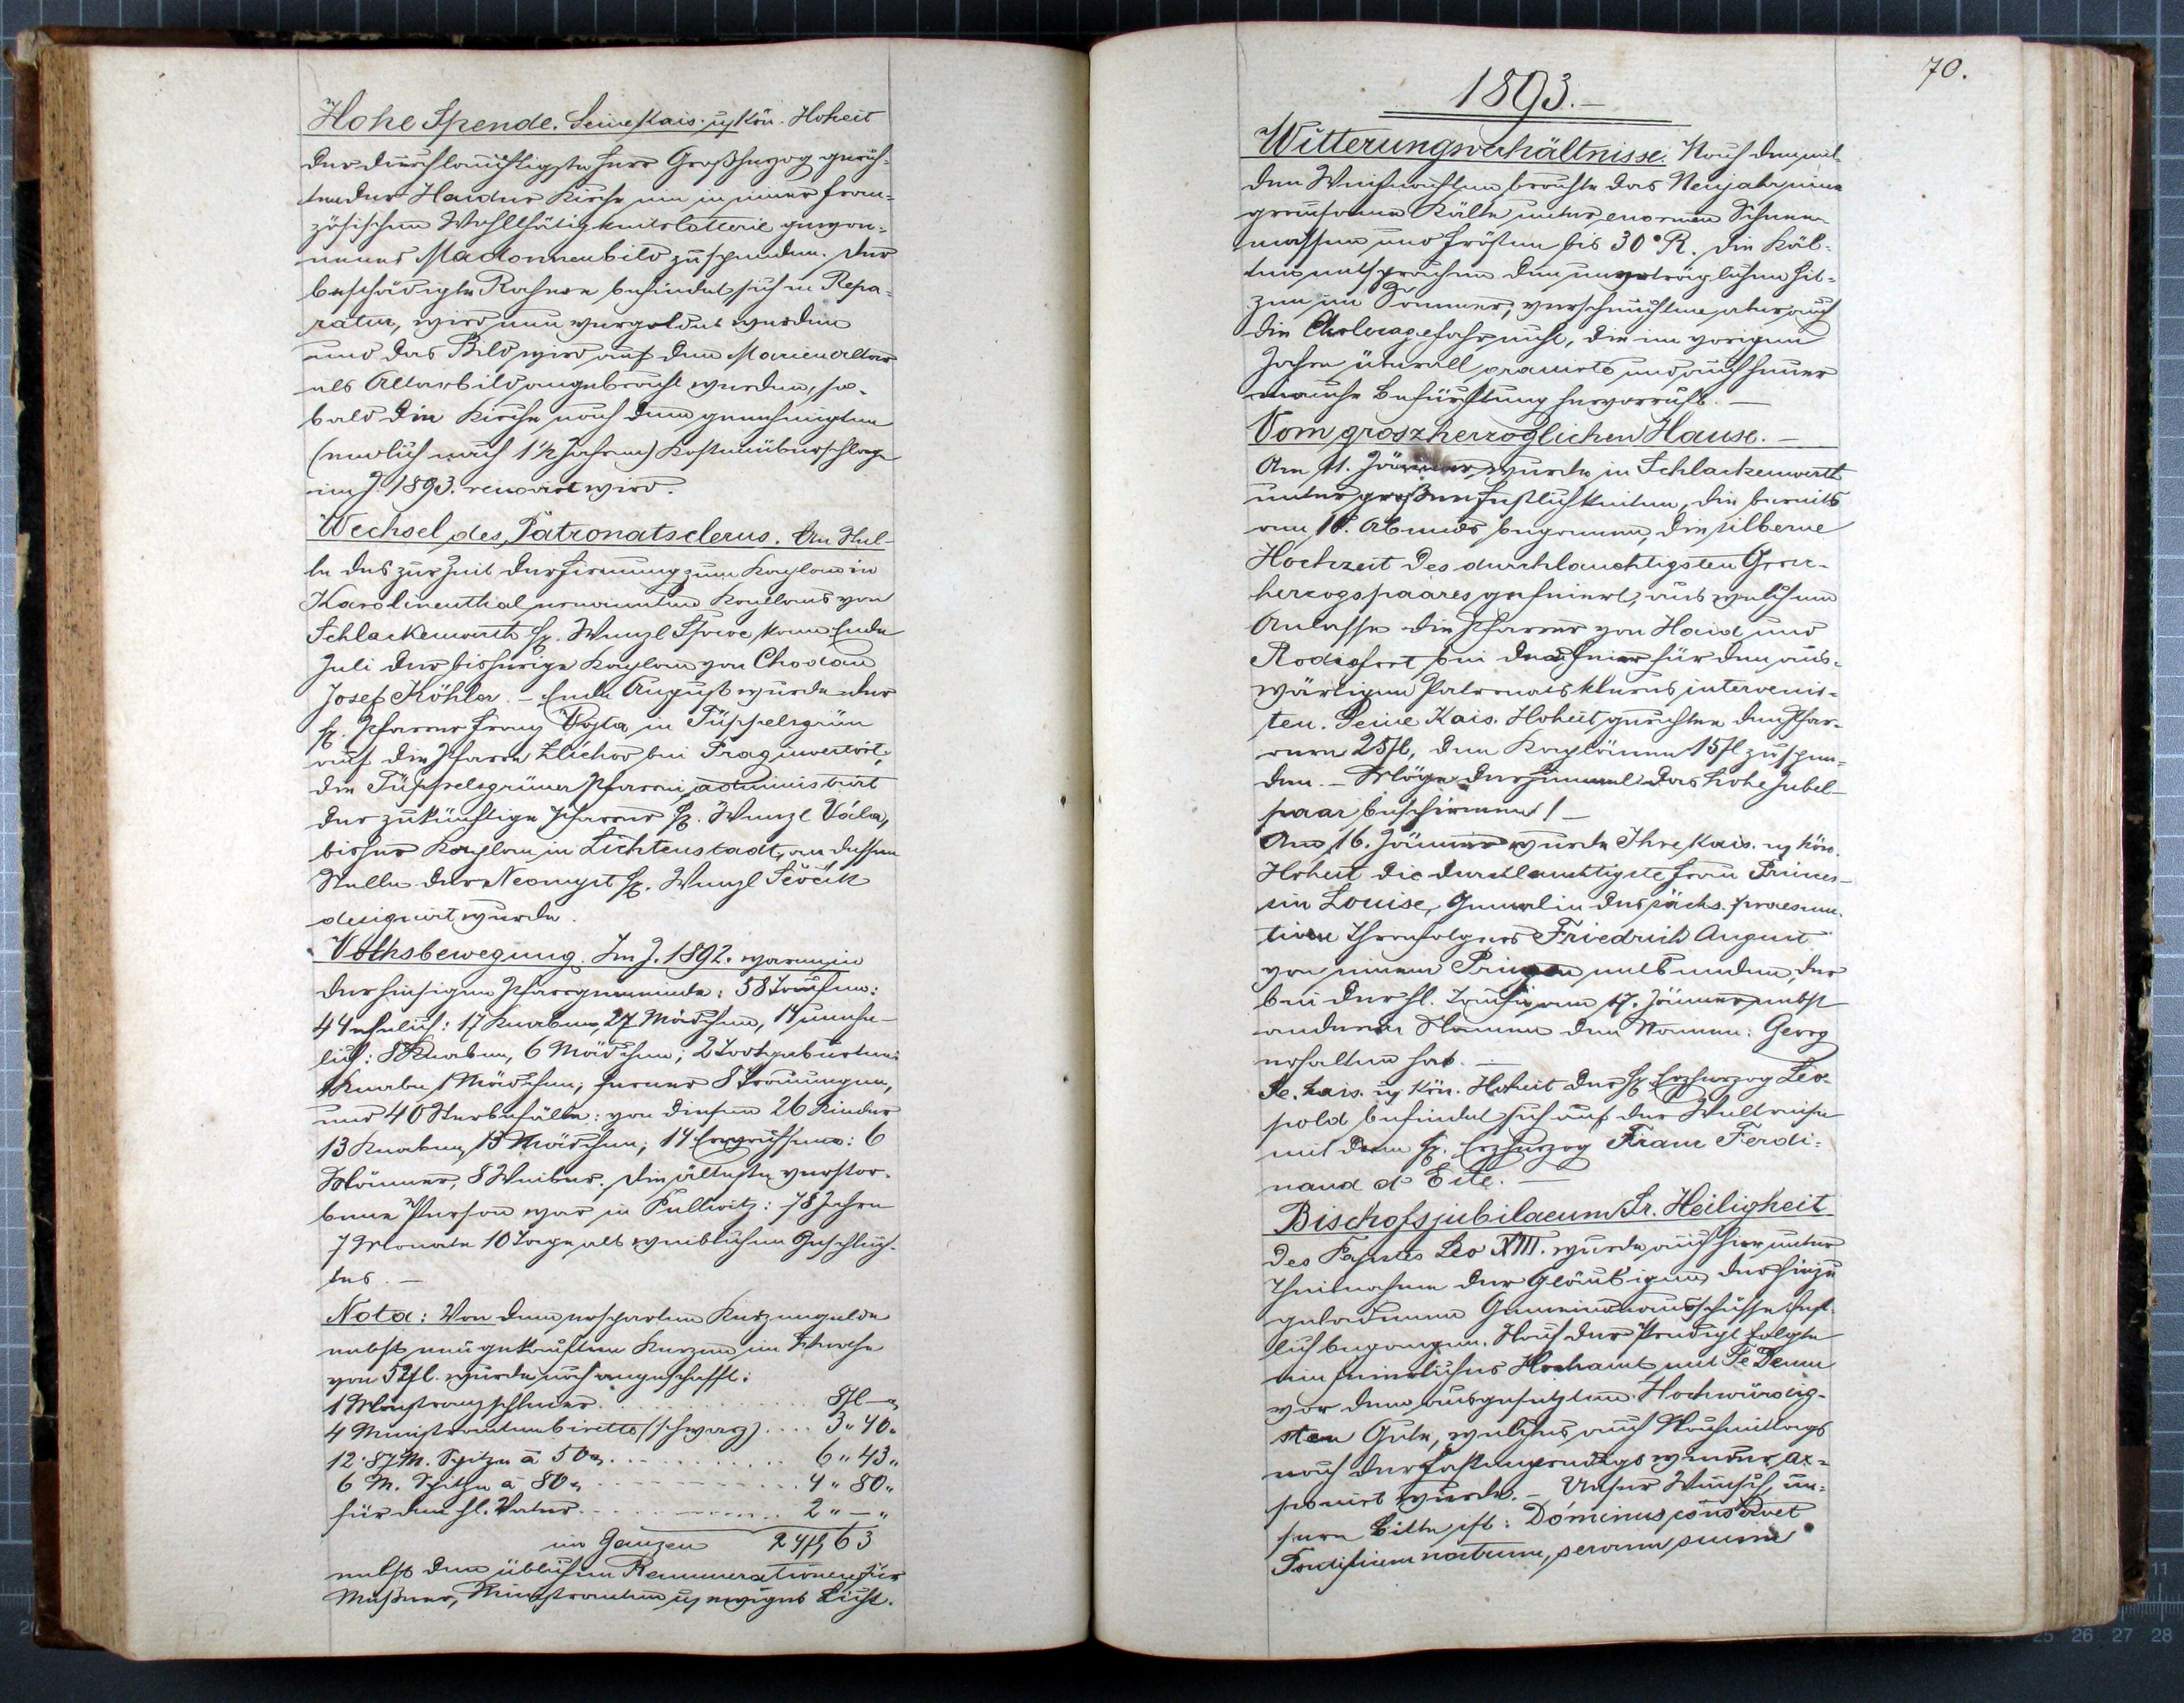 Hohe Spende. Seine kais. u. kön. Hoheit
der durchlauchtigste Herr Großherzog geruh-
ten der Haider Kirche ein in einer fran-
zösischen Wohlthätigkeitslotterie gewon-
nenes Madonnenbild zu spenden. Der
beschädigte Rahmen befindet sich in Repa-
ratur, wird neu vergoldet werden
und das Bild wird auf dem Marienaltar
als Altarbild angebracht werden, so-
bald die Kirche nach dem genehmigten
(endlich nach 1 1/2 Jahren) Kostenüberschlage
im J. 1893. renovirt wird.
Wechsel des Patronatsclerus. An Stel-
le des zur Zeit der Firmung zum Kaplan in
Karolinenthal ernannten Kaplans von
Schlackenwerth H. Wenzl kam Ende
Juli der bisherige Kaplan von Chodau
Josef Köhler. – Ende August wurde der
H. Pfarrer Franz Vojta in Tüppelsgrün
auf die Pfarre Zlichov bei Prag investirt,
die Tüppelsgrüner Pfarrei administrirt
der zukünftige Pfarrer H. Wenzl Vála,
bisher Kaplan in Lichtenstadt, an dessen
Stelle der Neomyst H. Wenzl Ševčik
designirt wurde.
Volksbewegung. Im J. 1892. waren in
der hiesigen Pfarrgemeinde: 58 Taufen:
44 ehelich: 17 Knaben, 27 Mädchen, 14 unehe-
lich: 8 Knaben, 6 Mädchen; 2 Todtgeburten:
1 Knabe 1 Mädchen; ferner 8 Trauungen,
und 40 Sterbefälle: von diesen 26 Kinder
13 Knaben, 13 Mädchen; 14 Erwachsene: 6
Männer, 8 Weiber. Die älteste verstor-
bene Person war in Pullwitz: 78 Jahre
7 Monate 10 Tage alt weiblichen Geschlech-
tes. –
Nota: Von dem ersparten Kerzengelde
nebst neugekauften Kerzen im Werthe
von 52 fl. wurde noch angeschafft:
1 Monstranzschleier . . . . . 8 fl –
4 Ministrantenbirette (schwarz) . . . . 3 " 40 "
12·87 M. Spitzen à 50 . . . . . 6 " 43 "
6 M. Spitzen à 80 . . . . . 4 " 80 "
für den hl. Vater . . . . . 2 " – "
im Ganzen 24 fl 63
nebst den üblichen Remunerationen für
Meßner, Ministranten u. ewiges Licht.
70.
1893. –
Witterungsverhältnisse. Nach den mil-
den Weihnachten brachte das Neujahr eine
grausame Kälte unter enormen Schnee-
massen und Frösten bis 30° R. Die Käl-
ten entsprachen den unerträglichen Hit-
zen im Sommer, verscheuchten aber auch
die Choleragefahr nicht, die im vorigen
Jahre überall grasirte und auch heuer
manche Befürchtung hervorruft. –
Vom groszherzoglichen Hause. –
Am 11. Jänner wurde in Schlackenwerth
unter großen Festlichkeiten, die bereits
am 10. Abends begonnen, die silberne
Hochzeit des durchlauchtigsten Gross-
herzogspaares gefeiert, aus welchem
Anlasse die Pfarrer von Haid und
Rodisfort bei der Feier für den aus-
wärtigen Patronatsklerus intervenir-
ten. Seine Kais. Hoheit geruhten den Pfar-
rern 25 fl, den Kaplänen 15 fl zu spen-
den. – Möge der Himmel das hohe Jubel-
paar beschirmen! –
Am 16. Jänner wurde Ihre kais. u. kön.
Hoheit die durchlauchtigste Frau Princes-
sin Louise, Gemalin des sächs. praesum-
tiven Thronfolgers Friedrich August
von einem Prinzen entbunden, der
bei der hl. Taufe am 17. Jänner nebst
anderen Namen den Namen: Georg
erhalten hat. –
Se. kais. u. kön. Hoheit der H. Erzherzog Leo-
pold befindet sich auf der Weltreise
mit dem H. Erzherzog Franz Ferdi-
nand d' Este. –
Bischofsjubilaeum Sr. Heiligkeit
des Papstes Leo XIII. wurde auch hier unter
Theilnahme der Gläubigen, der hiezu
geladenen Gemeindeausschüsse fest-
lich begangen. Nach der Predigt folgte
ein feierliches Hochamt mit Te Deum
vor dem ausgesetzten Hochwürdig-
sten Gute, welches auch Nachmittags
nach der Fastenpredigt wieder ex-
ponirt wurde. – Unser Wunsch, un-
sere Bitte ist: Dominus conservet
Pontificem nostrum, servum suum